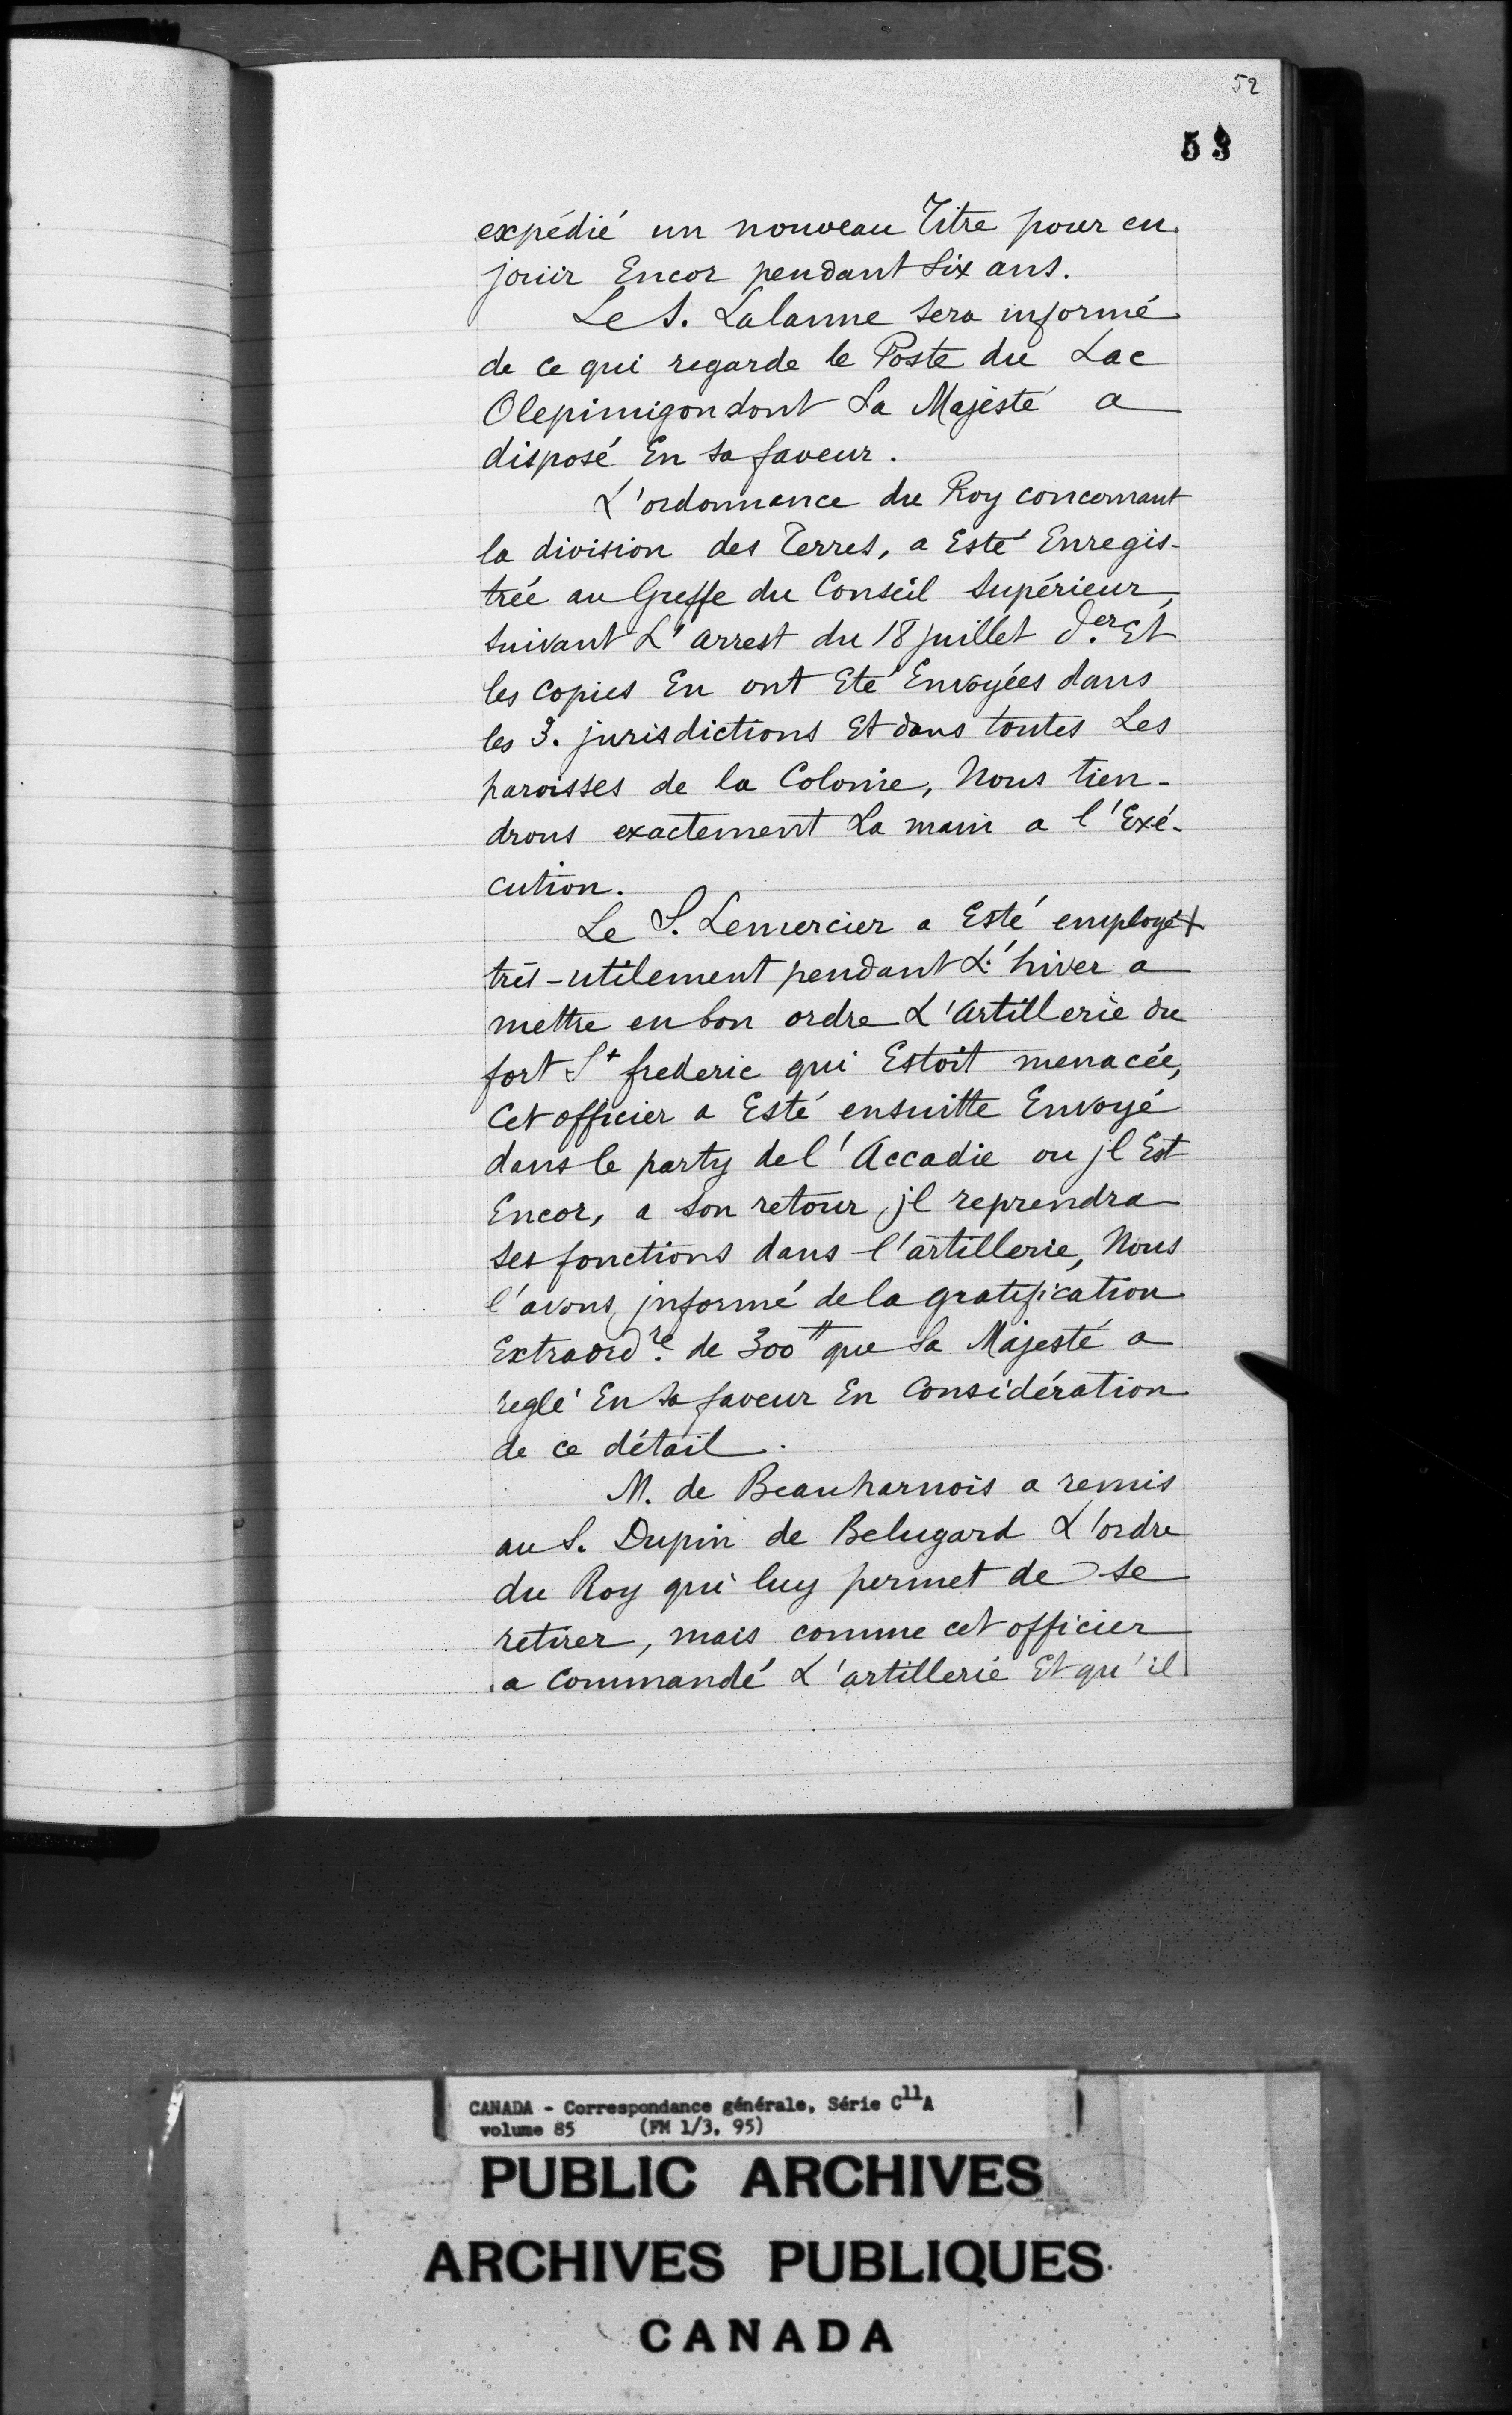 52
53
expédié un nouveau Titre pour en
jouir Encor pendant Six ans.
Le S. Lalanne Sera informé
de ce qui regarde le Poste du Lac
Olepimigon dont Sa Majesté a
disposé En sa faveur.
L'ordonnance du Roy concernant
la division des Terres, a Esté Enregis-
trée au Greffe du Conseil Supérieur,
suivant L'arrest du 18 juillet d.er Et
les copies En ont Eté Envoyées dans
les 3. jurisdictions Et dans toutes Les
paroisses de la Colonie, Nous tien-
drons exactement La main a l'Exé-
cution.
Le S. Lemercier a Esté employé +
très-utilement pendant L'hiver a
mettre en bon ordre L'Artillerie du
fort St frederic qui Estoit menacée,
Cet officier a Esté ensuitte Envoyé
dans le party de l'Accadie ou jl Est
Encor, a son retour, jl reprendra
ses fonctions dans l'artillerie, Nous
l'avons jnformé de la gratification
Extraord.re de 300tt que Sa Majesté a
reglé En sa faveur En Considération
de ce détail.
M. de Beauharnois a remis
au S. Dupin de Belugard L'ordre
du Roy qui luy permet de se
retirer, mais comme cet officier
a commandé L'artillerie Et qu'il
CANADA - Correspondance générale, Série C11A
volume 85 (FM 1/3, 95)
PUBLIC ARCHIVES
ARCHIVES PUBLIQUES
CANADA